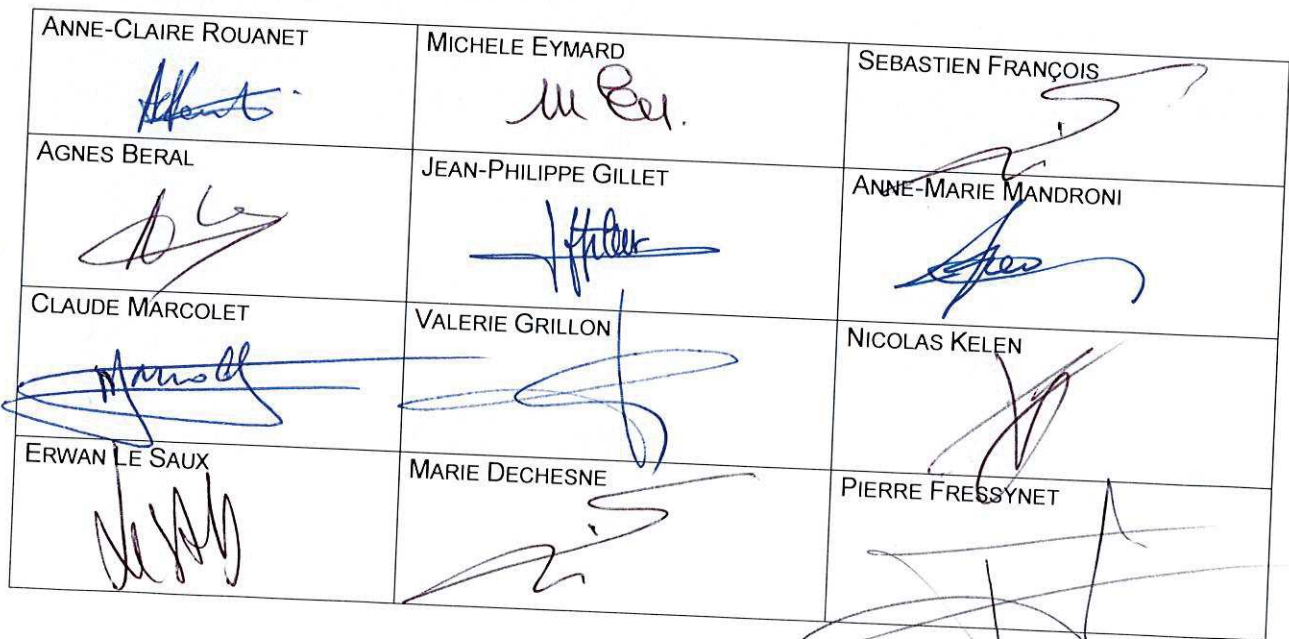 ANNE-CLAIRE ROUANET
MICHELE EYMARD
SEBASTIEN FRANÇOIS
AGNES BERAL
JEAN-PHILIPPE GILLET
ANNE-MARIE MANDRONI
CLAUDE MARCOLET
VALERIE GRILLON
NICOLAS KELEN
ERWAN LE SAUX
MARIE DECHESNE
PIERRE FRESSYNET